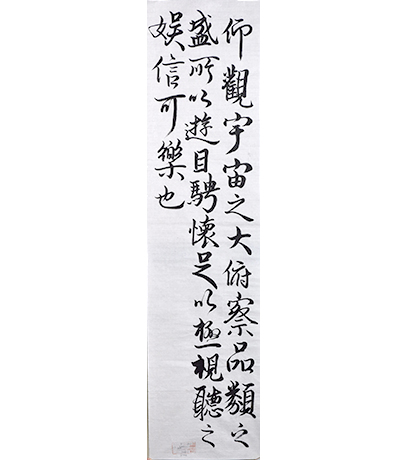 仰觀宇宙之大俯察品類之
盛所以遊目騁懷足以極視聽之
娱信可樂也